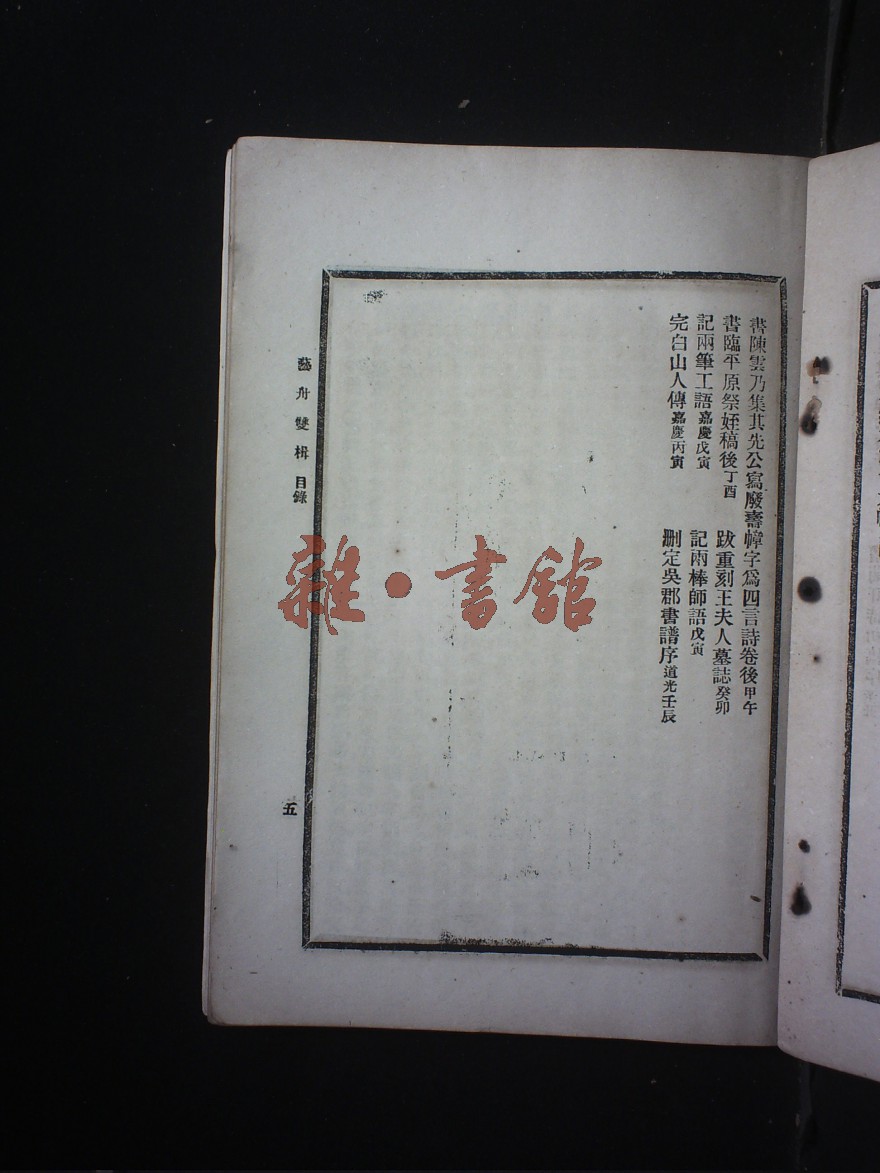 書陳雲乃集其先公寫廢壽幛字為四言詩卷後甲午
書臨平原祭姪稿後丁酉　跋重刻王夫人墓誌癸卯
記兩筆工語嘉慶戊寅　記兩棒師語戊寅
完白山人傳嘉慶丙寅　刪定吳郡書譜序道光壬辰
藝舟雙楫　目錄　五
雜·書館